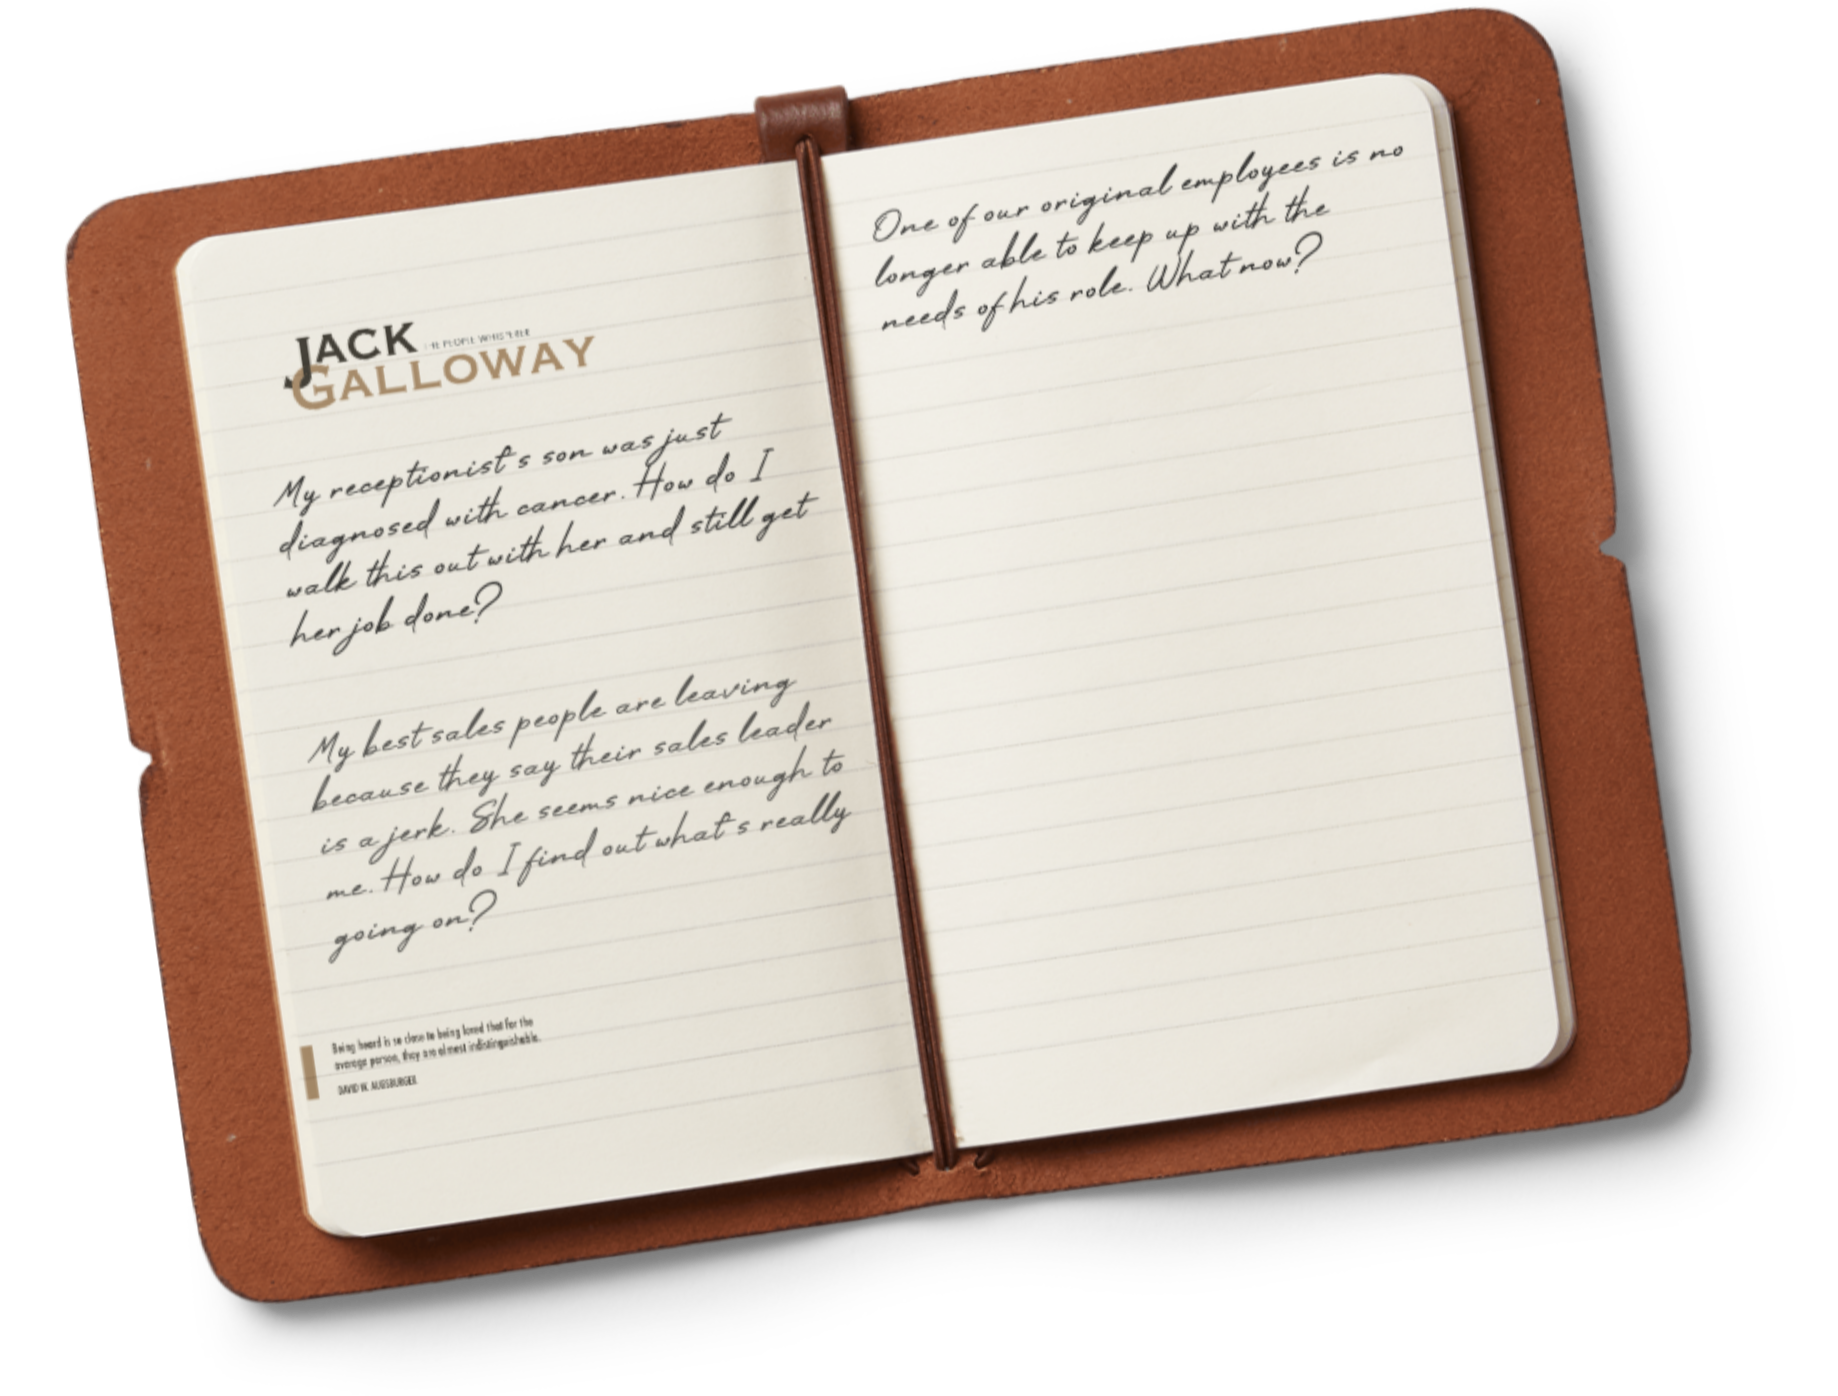 JACK THE PEOPLE WHISPERER
GALLOWAY
My receptionist's son was just
diagnosed with cancer. How do I
walk this out with her and still get
her job done?
My best sales people are leaving
because they say their sales leader
is a jerk. She seems nice enough to
me. How do I find out what's really
going on?
Being heard is so close to being loved that for the
average person, they are almost indistinguishable.
DAVID W. AUGSBURGER
One of our original employees is no
longer able to keep up with the
needs of his role. What now?